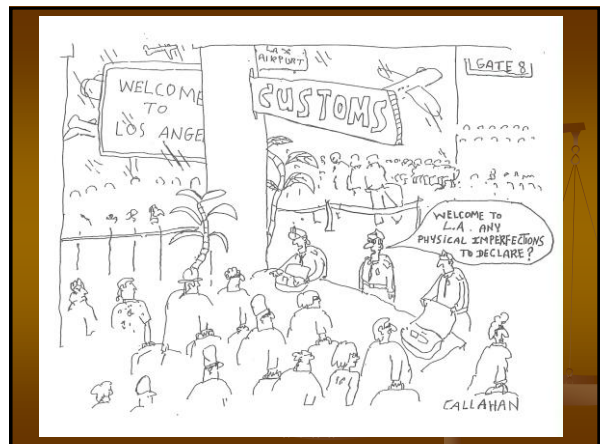 LAX
AIRPORT
GATE 8
WELCOME
TO
LOS ANGE
CUSTOMS
WELCOME TO
L.A. ANY
PHYSICAL IMPERFECTIONS
TO DECLARE?
CALLAHAN